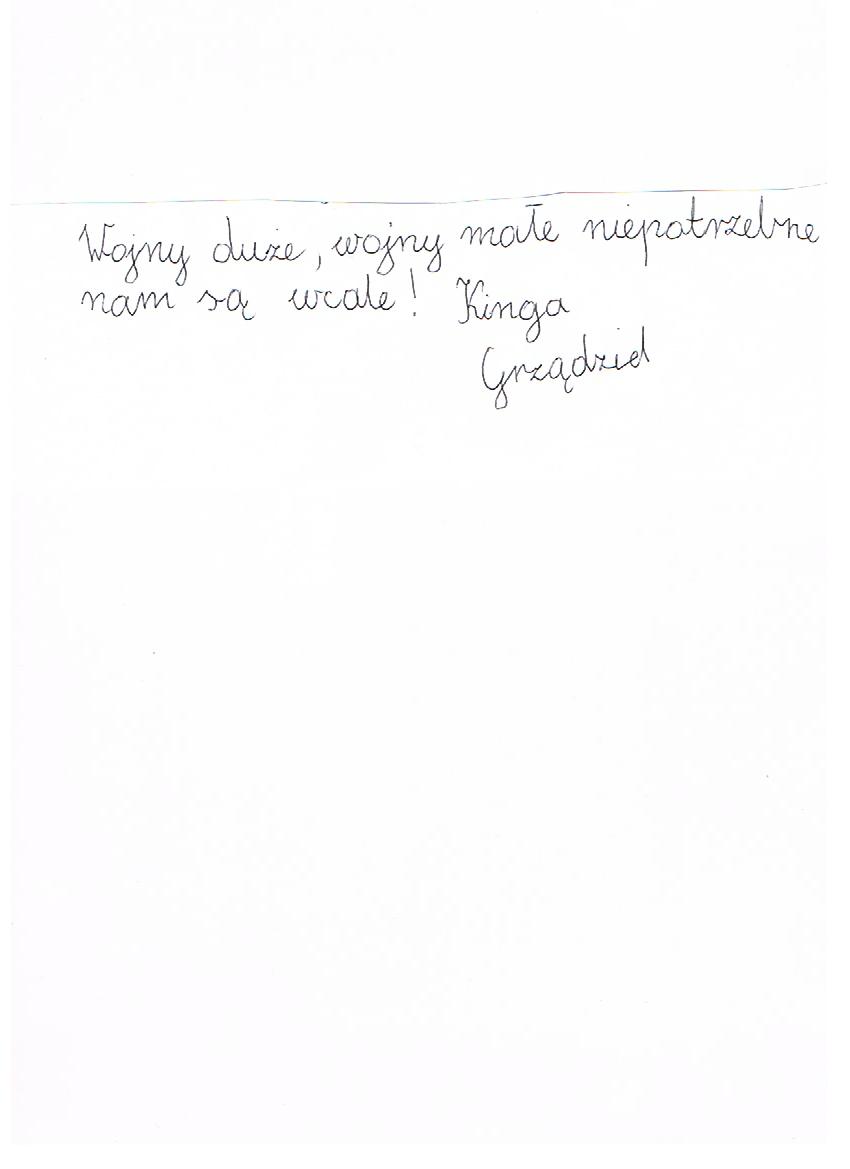 Wojny duże, wojny małe niepotrzebne
nam są wcale! Kinga
Grządziel